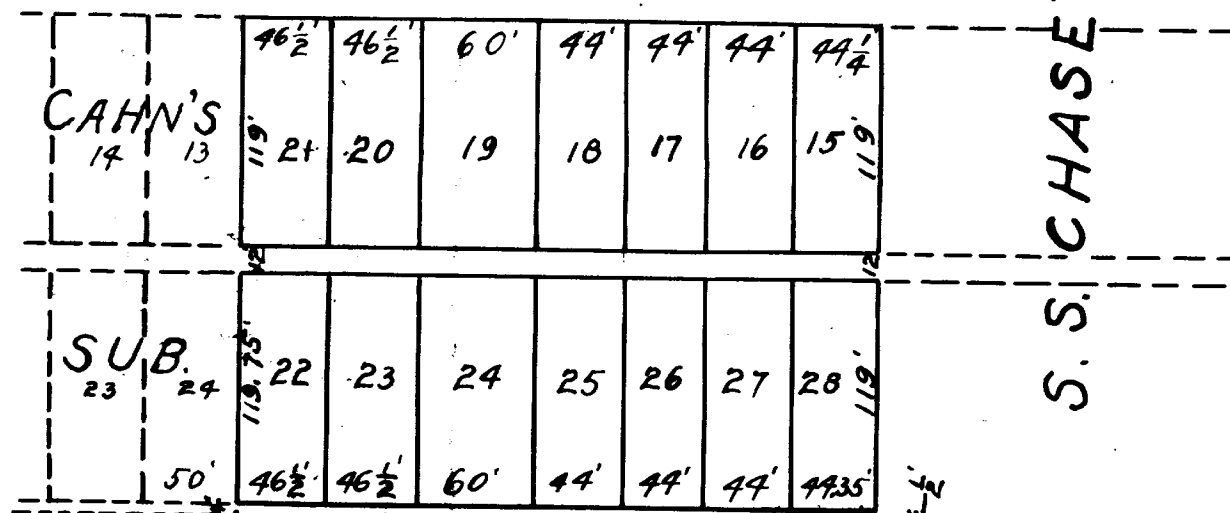 46½' 46½' 60' 44' 44' 44' 44¼
CAHN'S
14 13 119' 21 20 19 18 17 16 15 119'
S. S. CHASE
12 12
SUB.
23 24 119.75' 22 23 24 25 26 27 28 119'
50' 46½' 46½' 60' 44' 44' 44' 44.35'
½'